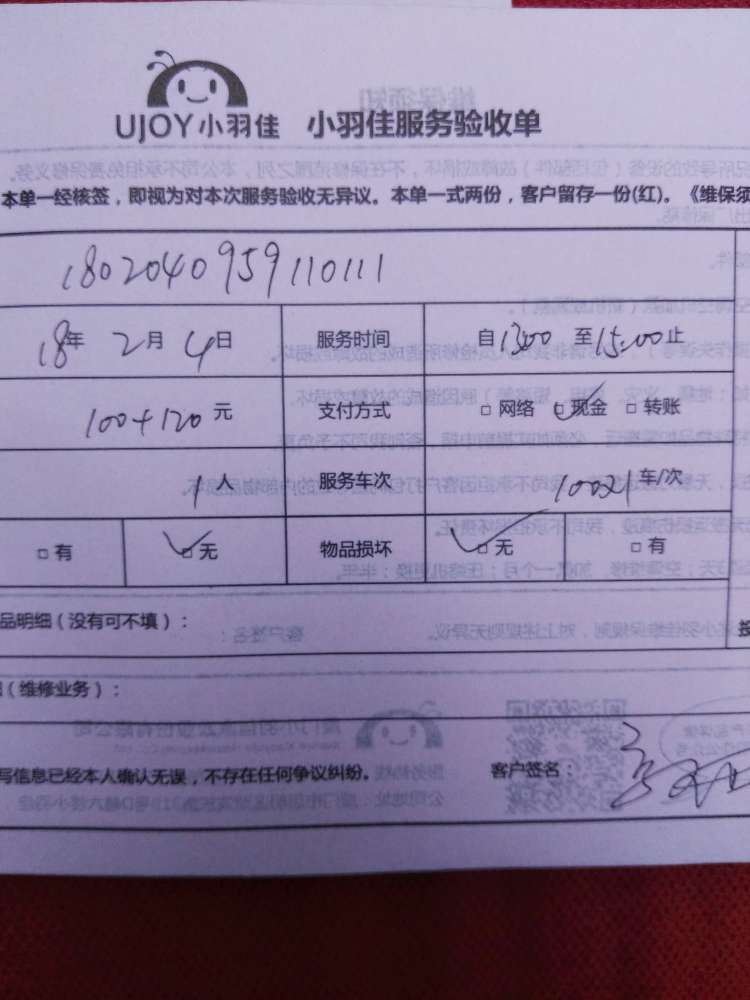 UJOY小羽佳 小羽佳服务验收单
本单一经核签，即视为对本次服务验收无异议。本单一式两份，客户留存一份(红)。《维保须
1802040959110111
18年 2月 4日 服务时间 自1300 至15:00止
100+120元 支付方式 □ 网络 □ 现金 □ 转账
1人 服务车次 100X1车/次
□ 有 □ 无 物品损坏 □ 无 □ 有
品明细（没有可不填）：
（维修业务）：
写信息已经本人确认无误，不存在任何争议纠纷。 客户签名：